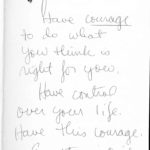 Have courage
to do what
you think is
right for you.
Have control
over your life.
Have this courage.